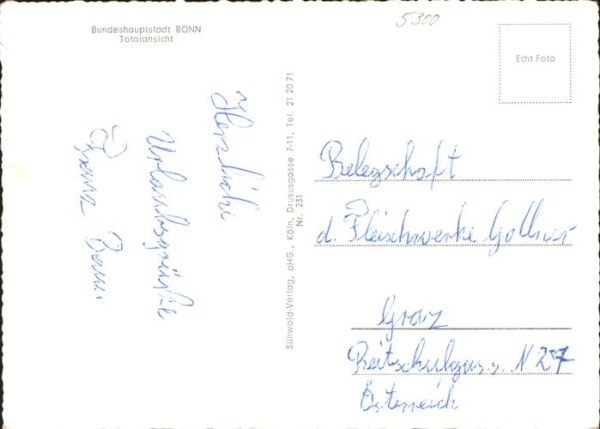 5300
Bundeshauptstadt BONN
Totalansicht
Echt Foto
Herzliche
Urlaubsgrüße
Franz
Sühwald-Verlag, oHG., Köln, Drususgasse 7-11, Tel. 21 20 71
Nr. 231
Belegschaft
d. Fleischwerke Gollner
Graz
Reitschulgasse N 27
Österreich